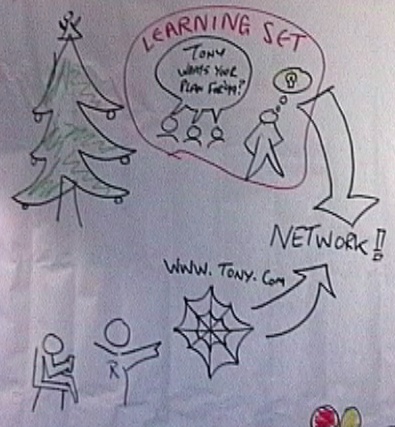 LEARNING SET
TONY
WHATS YOUR
PLAN FOR '99?
NETWORK!!
WWW.TONY.COM
R